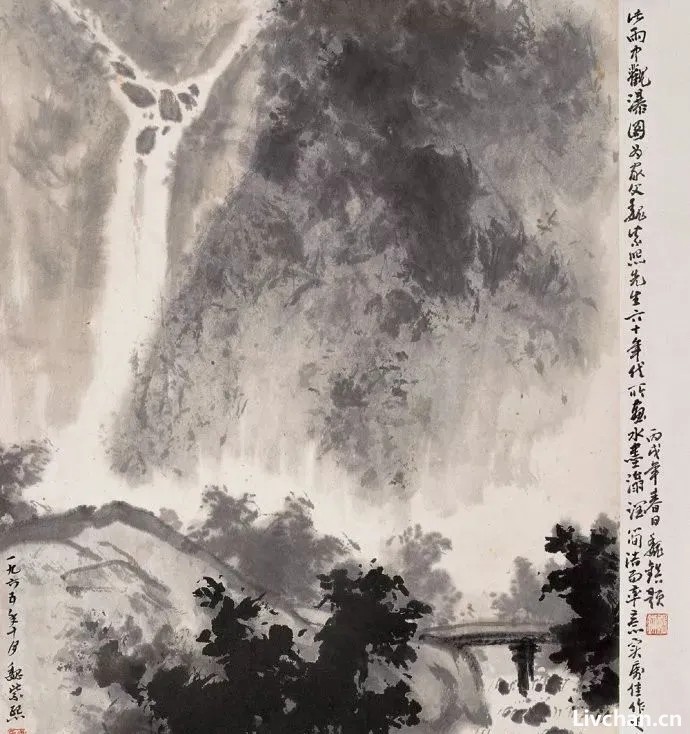 此雨中觀瀑图为家父魏紫熙先生六十年代所画水墨淋漓简洁而率意实为佳作也
丙戌年春日魏镇题
一九六五年十月魏紫熙
Livchan.cn